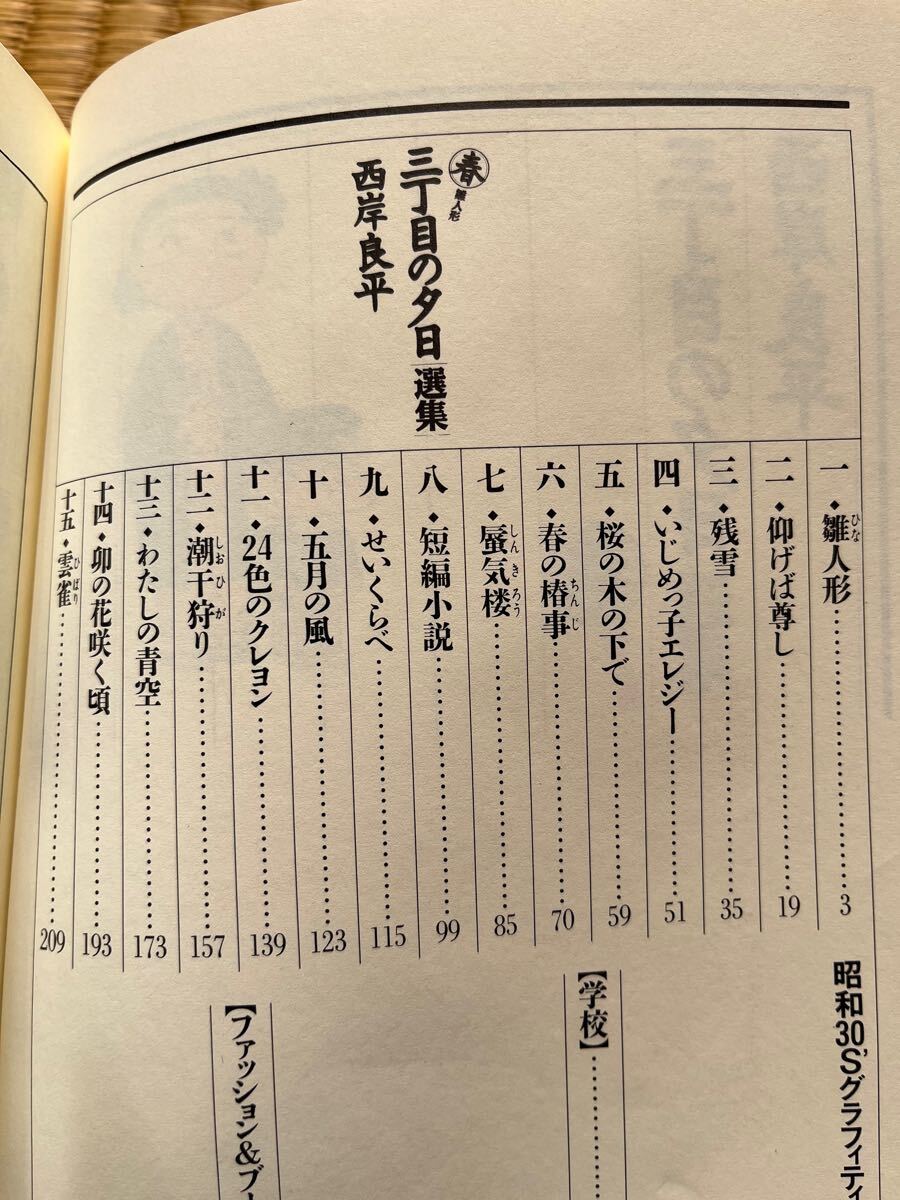 春
雛人形
三丁目の夕日 選集
西岸良平
一◆雛人形 3
ひな
二◆仰げば尊し 19
三◆残雪 35
四◆いじめっ子エレジー 51
五◆桜の木の下で 59
六◆春の椿事 70
ちんじ
七◆蜃気楼 85
しんきろう
八◆短編小説 99
九◆せいくらべ 115
十◆五月の風 123
十一◆24色のクレヨン 139
十二◆潮干狩り 157
しおひが
十三◆わたしの青空 173
十四◆卯の花咲く頃 193
十五◆雲雀 209
ひばり
昭和30'Sグラフィティ
【学校】
【ファッション&ブー